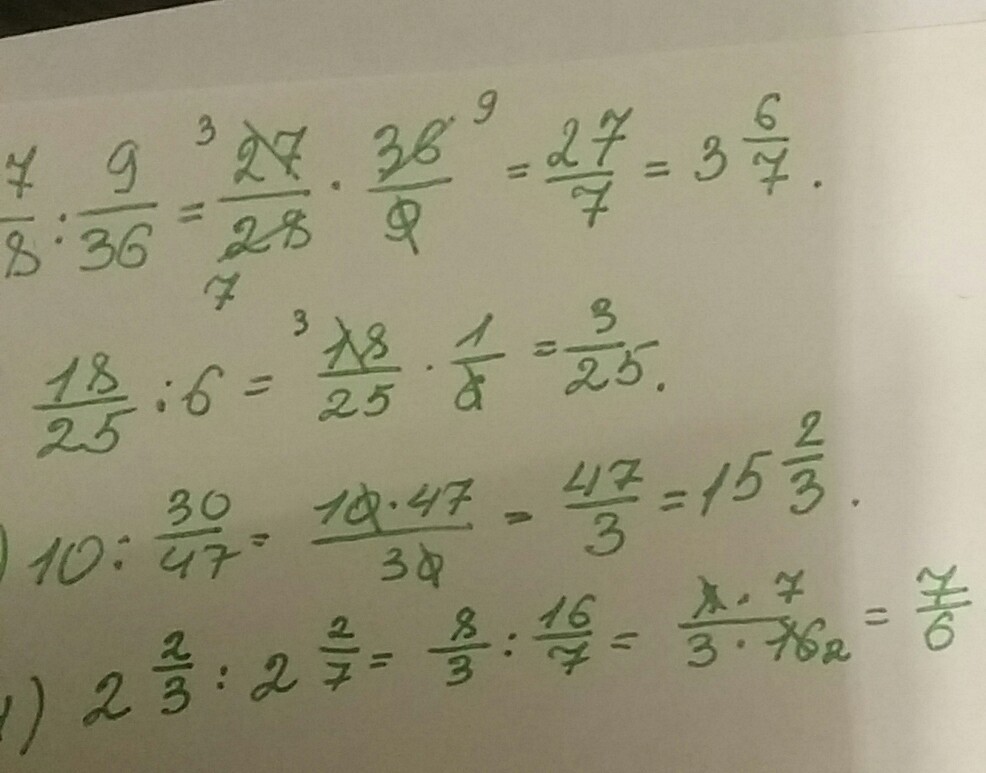 7/8 : 9/36 = ³ 27/28 ₇ · 36/9 ⁹ = 27/7 = 3 6/7.
18/25 : 6 = ³ 18/25 · 1/6 = 3/25.
) 10 : 30/47 = 10·47/30 = 47/3 = 15 2/3.
) 2 2/3 : 2 2/7 = 8/3 : 16/7 = 8·7/3·16 ₂ = 7/6